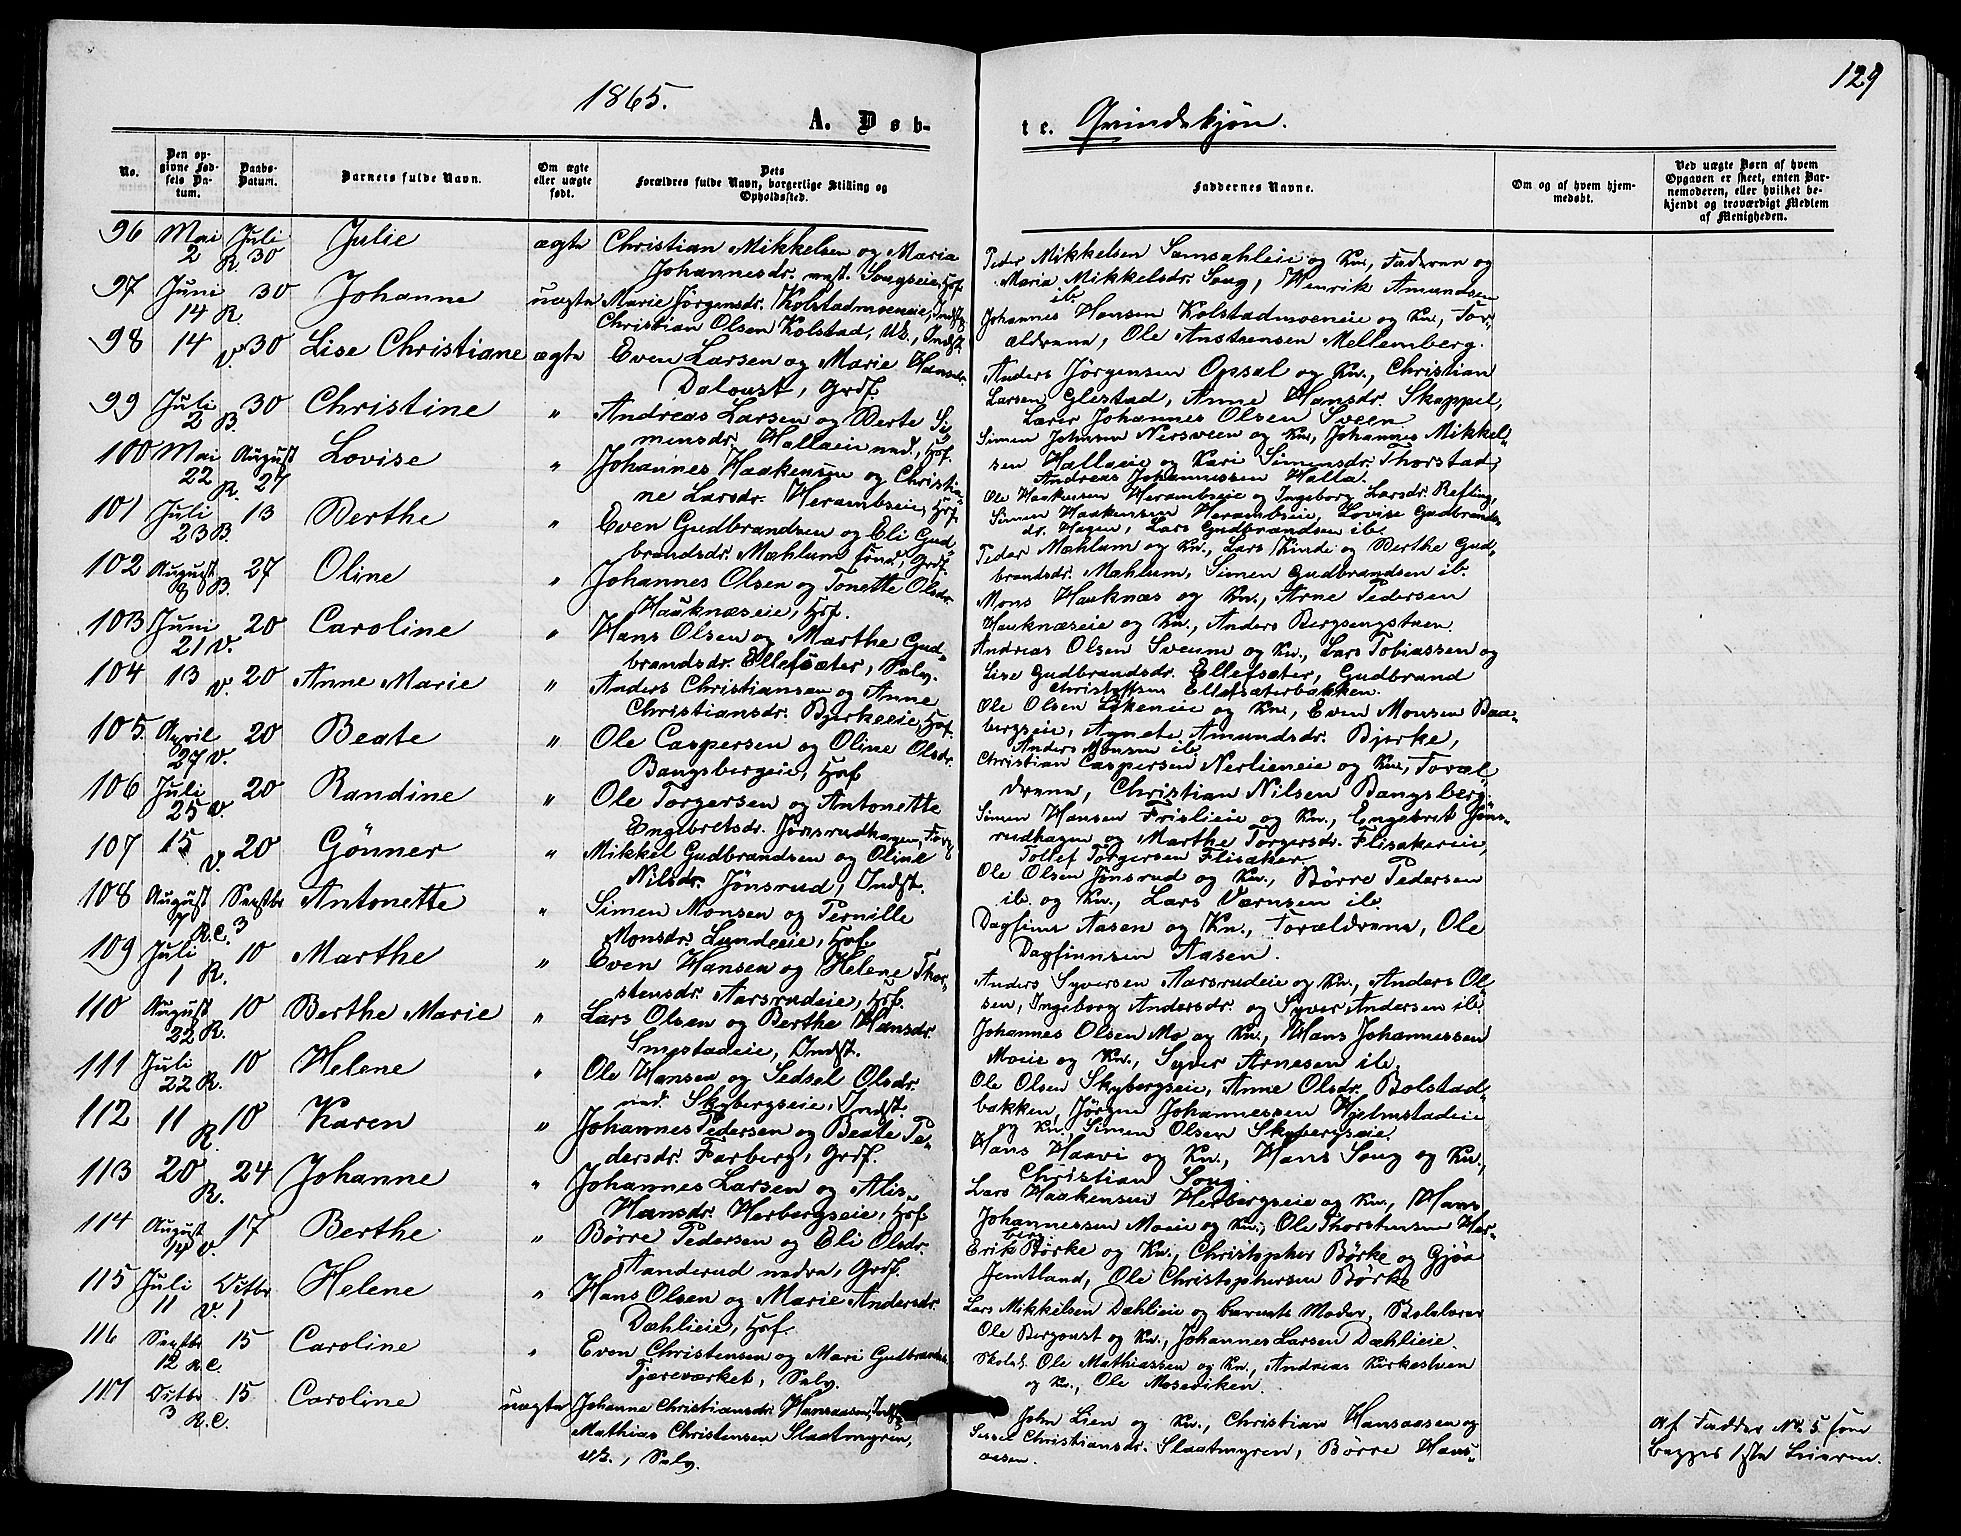 129
1865.
A. Døb-
te. Qvindekjøn.
No.
Den op-
givne Fød-
sels Da-
tum.
Daabs-
Datum.
Barnets fulde Navn.
Om ægte
eller uægte
født.
Dets
Forældres fulde Navn, borgerlige Stilling og
Opholdssted.
Faddernes Navne.
Om og af hvem hjem-
medøbt.
Ved uægte Børn af hvem
Opgaven er skeet, enten Bar-
nemoderen, eller hvilket be-
kjendt og troværdigt Medlem
af Menigheden.
96 Mai 2 R. Juli 30 Julie ægte Christian Mikkelsen og Maria
Johannesdr. Sougseie, Hof.
Peder Mikkelsen Samsahleie og Kn., Faderen og
Maria Mikkelsdr. Soug, Henrik Amundsen
ib.
97 Juni 14 R. 30 Johanne uægte Marie Jørgensdr. Kolstadmoeneie, Indst.
Christian Olsen Kolstad, Uk., Indst.
Johannes Hansen Kolstadmoeneie og Kn., For-
ældrene, Ole Anstensen Mellemberg.
98 14 V. 30 Lise Christiane ægte Even Larsen og Marie Hansdr.
Daloust, Grdf.
Anders Jörgensen Opsal og Kn., Christian
Larsen Glestad, Anne Hansdr. Skappel,
Lærer Johannes Olsen Sveen
99 Juli 2 B. 30 Christine " Andreas Larsen og Berte Si-
mensdr. Hallaeie ned., Hof.
Simen Johnsen Nersveen og Kn., Johannes Mikkel-
sen Hallaeie og Kari Simensdr. Thorstad,
Andreas Johannessen Halla.
100 Mai 22 R. August 27 Lovise " Johannes Haakensen og Christia-
ne Larsdr. Herambseie, Hof.
Ole Haakensen Herambseie og Ingeborg Larsdr. Refling,
Simen Haakensen Herambseie, Lovise Gudbrands-
dr. Hagen, Lars Gudbrandsen ib.
101 Juli 23 B. 13 Berthe " Even Gudbrandsen og Eli Gud-
brandsdr. Mæhlum, Grdf.
Peder Mæhlum og Kn., Lars Kinde og Berthe Gud-
brandsdr. Mæhlum, Simen Gudbrandsen ib.
102 August 8 B. 27 Oline " Johannes Olsen og Tonette Olsdr.
Hauknæseie, Hof.
Mons Hauknæs og Kn., Arne Pedersen
Hauknæseie og Kn., Anders Bergsengstuen.
103 Juni 21 V. 20 Caroline " Hans Olsen og Marthe Gud-
brandsdr. Ellefsæter, Selv.
Andreas Olsen Sveum og Kn., Lars Tobiassen og
Lise Gudbrandsdr. Ellefsæter, Gudbrand
Christoffsen Ellefsæterbakken.
104 13 V. 20 Anne Marie " Anders Christiansen og Anne
Christiansdr. Bjerkeeie, Hof.
Ole Olsen Likeneie og Kn., Even Monsen Baa-
bergseie, Agnete Amundsdr. Bjerke,
Anders Monsen ib.
105 April 27 V. 20 Beate " Ole Caspersen og Oline Olsdr.
Bangsbergeie, Hof.
Christian Caspersen Nerlieneie og Kn., Foræl-
drene, Christian Nilsen Bangsberg.
106 Juli 25 V. 20 Randine " Ole Torgersen og Antonette
Engebretsdr. Jönsrudhagen, Forp.
Simen Hansen Frislieie og Kn., Engebret Jöns-
rudhagen og Marthe Torgersdr. Flisakereie,
Tollef Torgersen Flisaker.
107 15 V. 20 Gönner " Mikkel Gudbrandsen og Oline
Nilsdr. Jönsrud, Indst.
Ole Olsen Jönsrud og Kn., Börre Pedersen
ib. og Kn., Lars Værnsen ib.
108 August 7 R.C. Septbr 3 Antonette " Simen Monsen og Pernille
Monsdr. Lundeeie, Hof.
Dagfinn Aasen og Kn., Forældrene, Ole
Dagfinnsen Aasen.
109 Juli 1 R. 10 Marthe " Even Hansen og Helene Thor-
stensdr. Aarsrudeie, Hof.
Anders Syversen Aarsrudeie og Kn., Anders Ol-
sen, Ingeborg Andersdr. og Syver Andersen ib.
110 August 22 R. 10 Berthe Marie " Lars Olsen og Berthe Hansdr.
Smestadeie, Indst.
Johannes Olsen Mo og Kn., Hans Johannessen
Moeie og Kn., Syver Arnesen ib.
111 Juli 22 R. 10 Helene " Ole Hansen og Sedsel Olsdr.
ned. Skybergseie, Indst.
Ole Olsen Skybergseie, Anne Olsdr. Bolstad-
bakken, Jörgen Johannessen Hjelmstadeie
og Kn., Simen Olsen Skybergseie.
112 11 R. 10 Karen " Johannes Pedersen og Beate Pe-
dersdr. Farberg, Grdf.
Hans Haavi og Kn., Hans Soug og Kn.,
Christian Soug.
113 20 R. 24 Johanne " Johannes Larsen og Alis
Hansdr. Herbergseie, Hof.
Lars Haakensen Herbergseie og Kn., Hans
Johannessen Moeie og Kn., Ole Thorstensen Her-
berg.
114 August 14 V. 17 Berthe " Börre Pedersen og Eli Olsdr.
Aanderud nedre, Grdf.
Erik Börke og Kn., Christopher Börke og Gjöa
Jemtland, Ole Christophersen Börke
115 Juli 11 V. Octbr 1 Helene " Hans Olsen og Marie Andersdr.
Dæhlieie, Hof.
Lars Mikkelsen Dæhlieie og Barnets Moder,
Ole Bergoust og Kn., Johannes Larsen Dæhlieie.
116 Septbr 12 R.C. 15 Caroline " Even Christensen og Mari Gudbrandsdr.
Tjæreværket, Selv.
Skolel. Ole Mathiassen og Kn., Andreas Kirkestuen
og Kn., Ole Moseviken.
117 Octbr 3 R.C. 15 Caroline uægte Johanne Christiansdr. Hansaasen, Indst.
Mathias Christensen Slaatmyren,
Uk., Selv.
John Lien og Kn., Christian Hansaasen og
Sessel Christiansdr. Slaatmyren, Börre Hans-
aasen.
Af Fadder No. 5 som
begges 1ste Leierm.